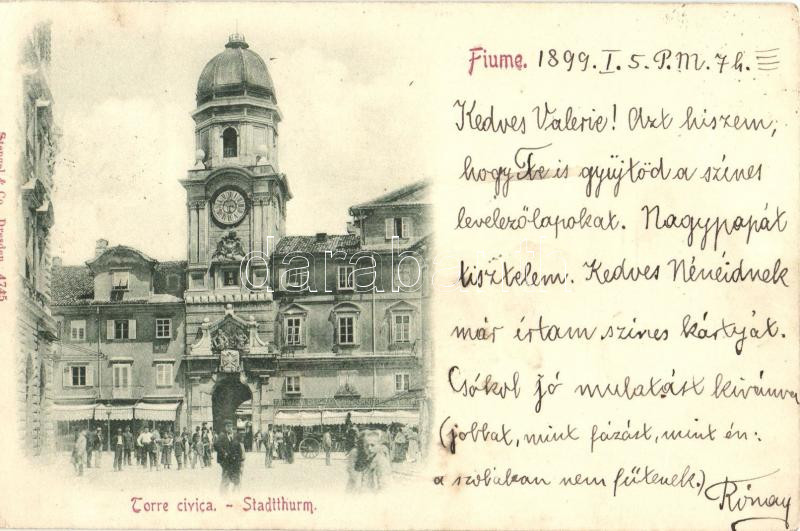 Fiume. 1899. I. 5. P.M. 7h.
Kedves Valerie! Azt hiszem,
hogy Te is gyűjtöd a színes
levelezőlapokat. Nagypapát
tisztelem. Kedves Nénéidnek
már írtam színes kártyát.
Csókol jó mulatást kívánva
(jobbat, mint fázást, mint én:
a szobákan nem fűtenek.)
Rónay
Torre civica. - Stadtthurm.
Stengel & Co., Dresden 4745
darab